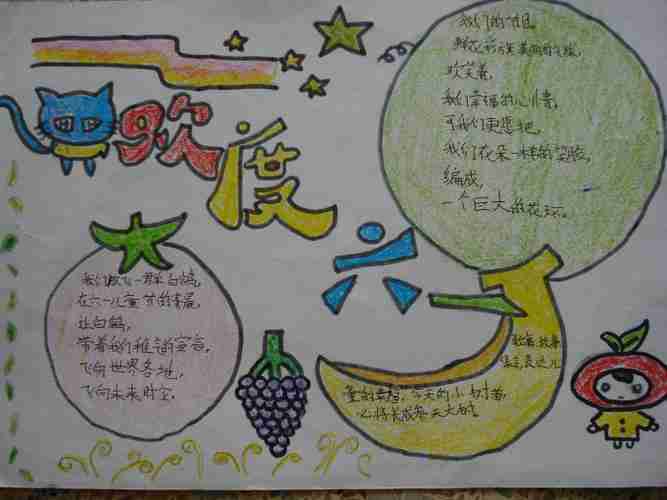 欢度六一
我们的祖国
鲜花
欢笑着,
我们幸福的心情,
可我们更愿把,
我们花朵一样的笑脸,
编成,
一个巨大的花环。
我们放飞一群白鸽,
在六一儿童节的清晨,
让白鸽,
带着我们稚语的宣言,
飞向世界各地,
飞向未来时空。
今天的小树苗,
必将长成参天大树